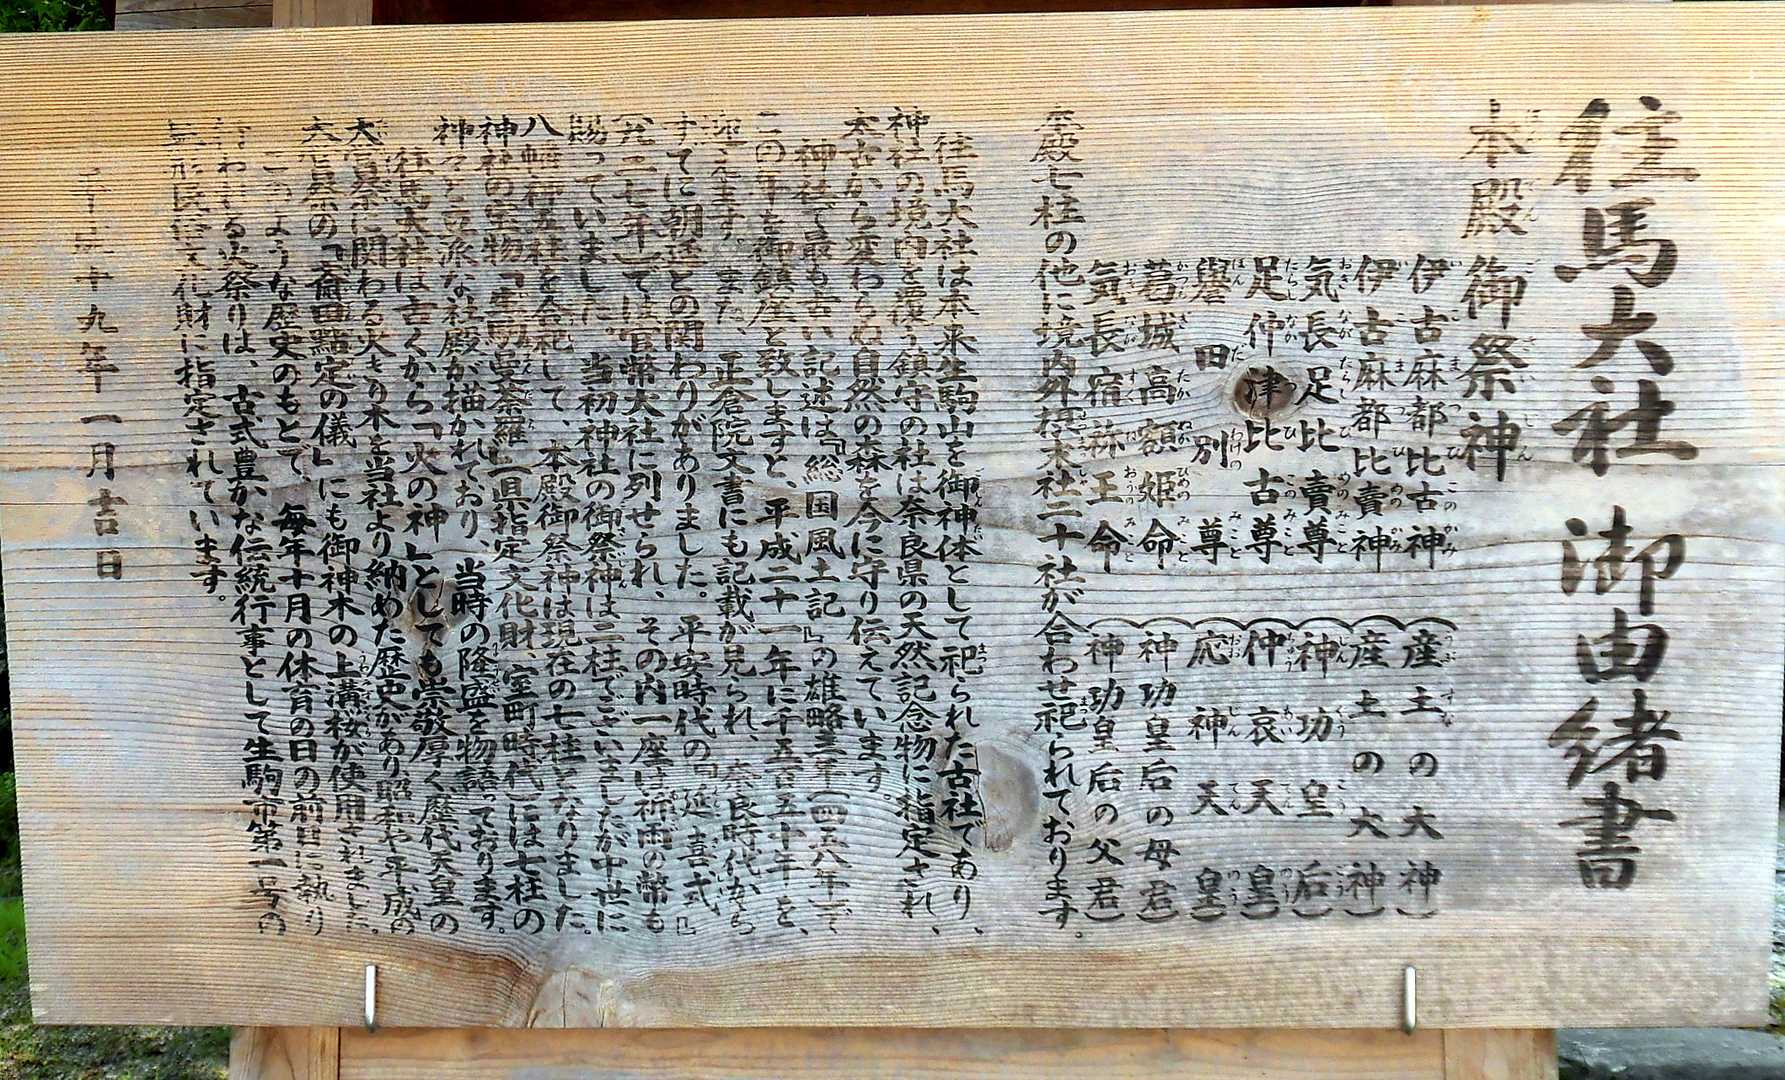 往馬大社 御由緒書
本殿 御祭神
伊古麻都比古神 (産土の大神)
伊古麻都比賣神 (産土の大神)
気長足比賣尊 (神功皇后)
足仲津比古尊 (仲哀天皇)
譽田別尊 (応神天皇)
葛城高額姫命 (神功皇后の母君)
気長宿祢王命 (神功皇后の父君)
本殿七柱の他に境内外摂末社二十社が合わせ祀られております。
往馬大社は本来生駒山を御神体として祀られた古社であり、
神社の境内を覆う鎮守の社は奈良県の天然記念物に指定され、
太古から変わらぬ自然の森を今に守り伝えています。
神社で最も古い記述は『総国風土記』の雄略三年(四五八年)で
この年を御鎮座と致しますと、平成二十一年に千五百五十年を、
迎えます。また、正倉院文書にも記載が見られ、奈良時代から
すでに朝廷との関わりがありました。平安時代の『延喜式』
(九二七年)では官幣大社に列せられ、その内一座は祈雨の幣も
賜っていました。当初神社の御祭神は二柱でございましたが中世に
八幡神五柱を合祀して、本殿御祭神は現在の七柱となりました。
神社の宝物「生駒曼荼羅」(県指定文化財、室町時代)には七柱の
神々と立派な社殿が描かれており、当時の隆盛を物語っております。
往馬大社は古くから「火の神」としても崇敬厚く歴代天皇の
大嘗祭に関わる火きり木を当社より納めた歴史があり昭和や平成の
大嘗祭の「斎田點定の儀」にも御神木の上溝桜が使用されました。
このような歴史のもとで、毎年十月の体育の日の前日に執り
行われる火祭りは、古式豊かな伝統行事として生駒市第一号の
無形民俗文化財に指定されています。
平成十九年一月吉日